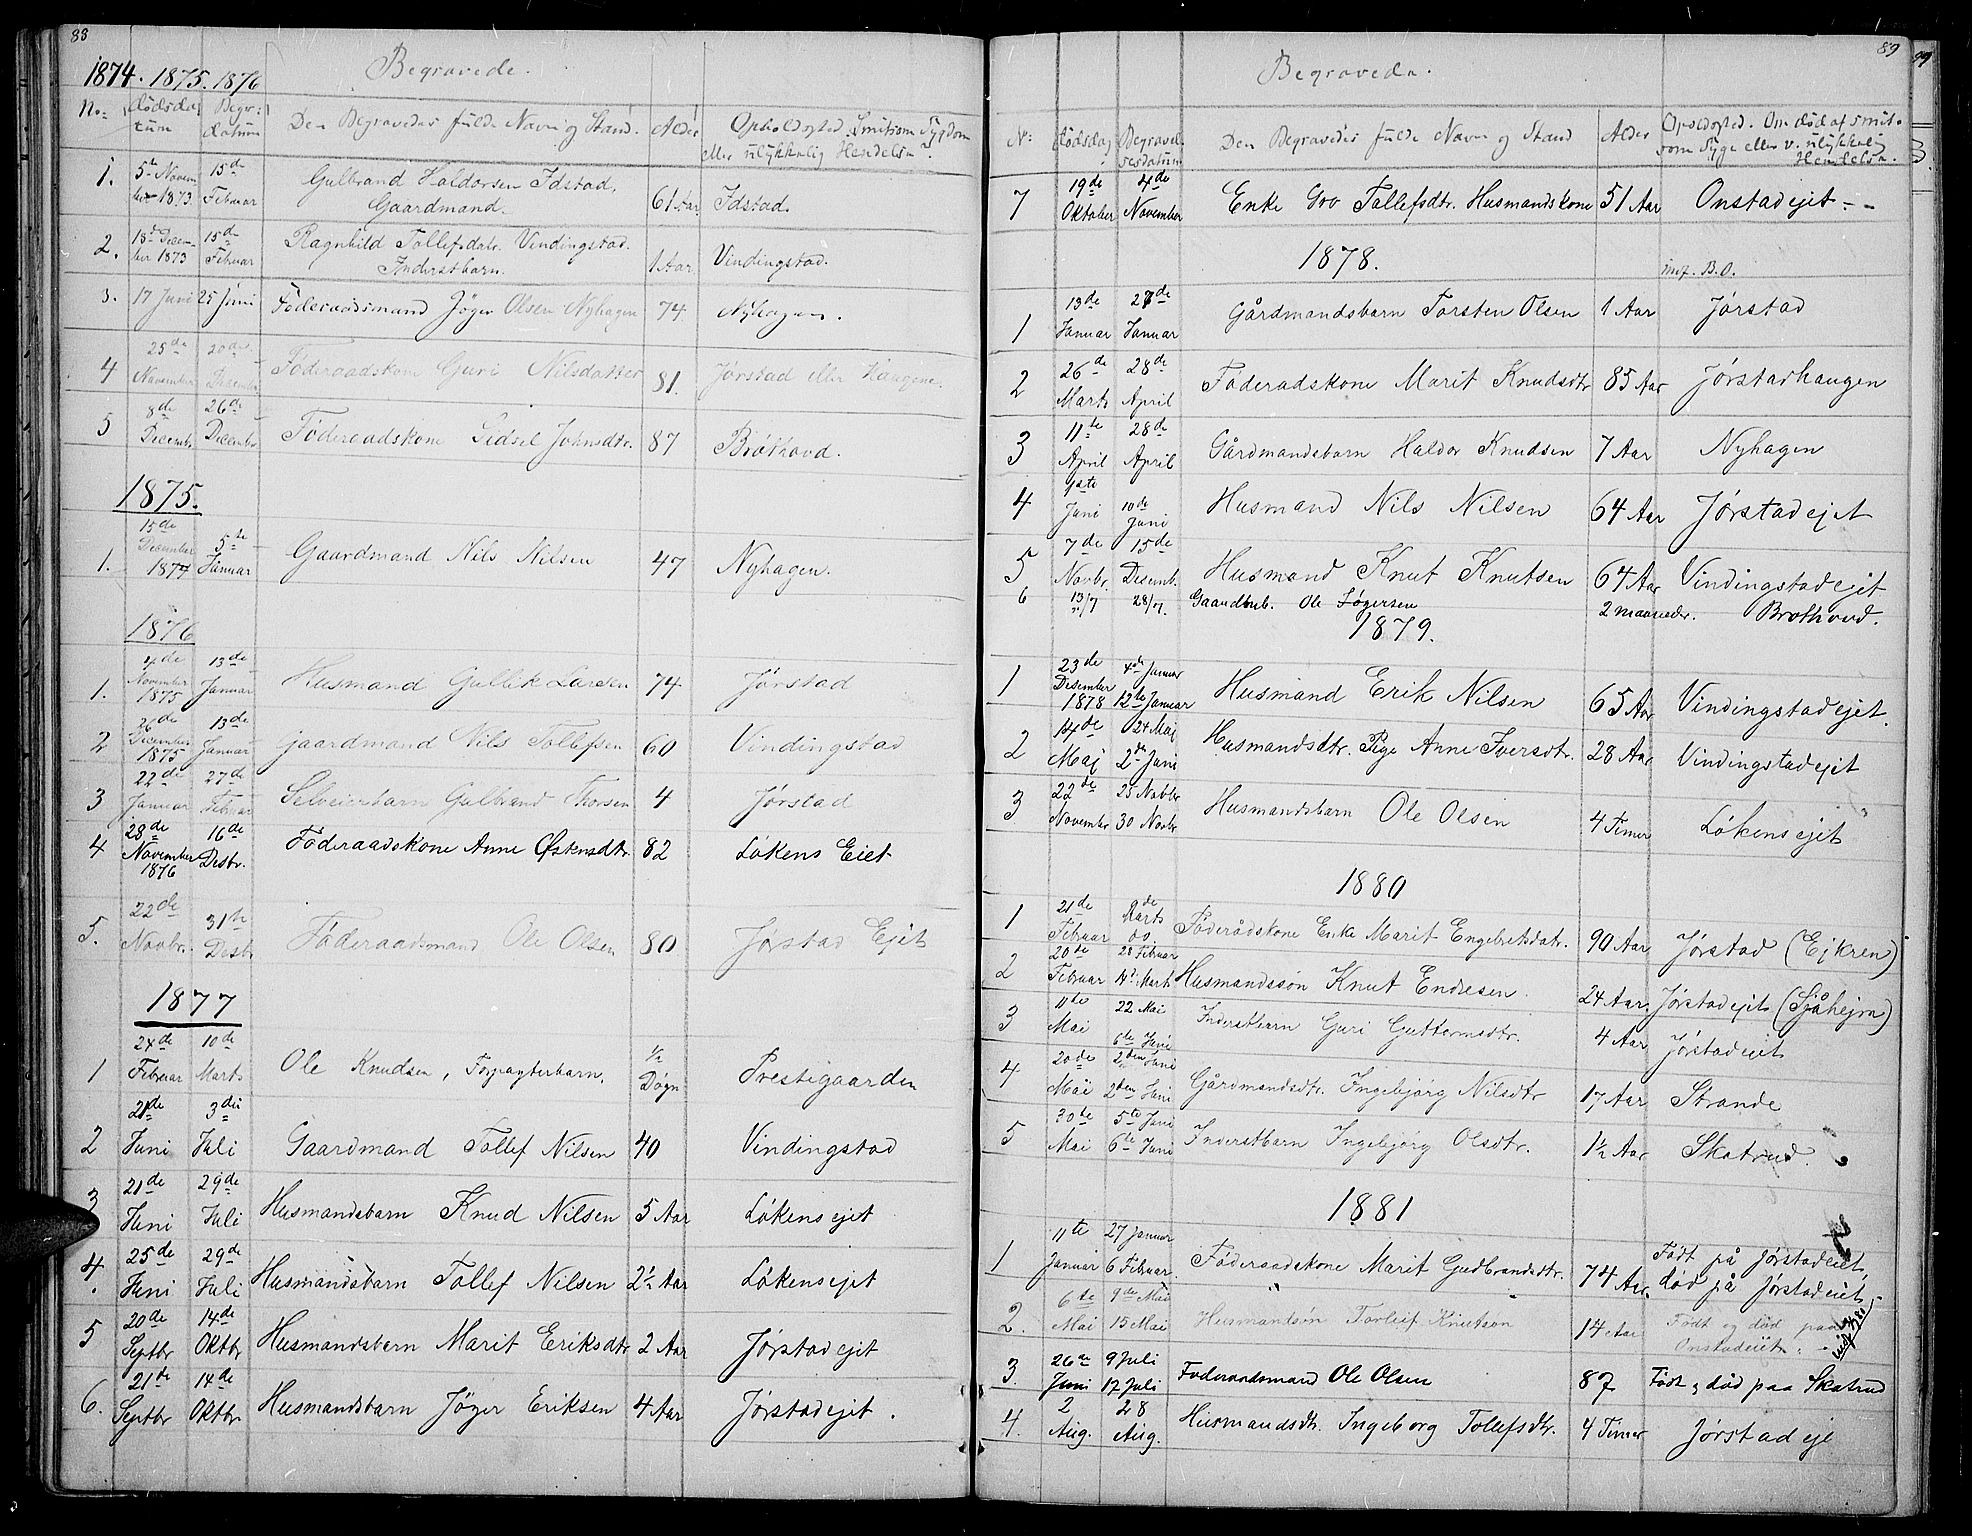 88
1874. 1875. 1876
Begravede.
No: Dødsda- tum Begr: datum Den Begravedes fulde Navn og Stand. Alder Opholdssted. Smitsom Sygdom
eller ulykkelig Hendelse?
1. 5te Novem- ber 1873 15de Februar Gulbrand Haldorsen Idstad. Gaardmand. 61 Aar Idstad.
2. 18de Decem- ber 1873 15de Februar Ragnhild Tollefsdatr. Vindingstad. Inderstbarn. 1 Aar Vindingstad.
3. 17 Juni 25 Juni Föderaadsmand Jöger Olsen Nyhagen 74 Nyhagen.
4 25de November 20de December Föderaadskone Guri Nilsdatter 81. Jørstad eller Haugene
5 8de Decembr 26de December Föderaadskone Sidsel Johnsdtr. 87 Bröthovd.
1875.
1. 15de December 1874 5te Januar Gaardmand Nils Nilsen 47 Nyhagen.
1876
1. 4de November 1875 13de Januar Husmand Gullik Larsen 74 Jørstad
2 26de December 1875 13de Januar Gaardmand Nils Tollefsen 60 Vindingstad
3 22de Januar 27de Februar Selveierbarn Gulbrand Thorsen 4 Jørstad
4 28de November 1876 16de Desbr. Föderaadskone Anne Østensdtr. 82 Løkens Eiet
5. 22de Novbr. 31te Desbr Föderaadsmand Ole Olsen 80 Jørstad Ejet
1877
1 24de Februar 10de Marts Ole Knudsen, Forpagterbarn. 1/2 Døgn Prestegaarden
2 21de Juni 3die Juli Gaardmand Tollef Nilsen 40 Vindingstad
3 21de Juni 29de Juli Husmandsbarn Knud Nilsen 5 Aar Løkensejet
4. 25de Juni 29de Juli Husmandsbarn Tollef Nilsen 2½ Aar Løkensejet
5 20de Septbr 14de Oktbr Husmandsbarn Marit Eriksdtr 2 Aar Jørstadejet
6. 21de Septbr 14de Oktbr Husmandsbarn Jöger Eriksen 4 Aar Jørstadejet.
89
Begravede.
N: Dødsdag Begravel- sesdatum Den Begravedes fulde Navn og Stand Alder Opholdssted. Om død af smit-
som Syge eller v. ulykkelig
Hendelse.
7 19de Oktober 4de November Enke Gro Tollefsdtr. Husmandskone 51 Aar Onstadejet--
1878.
1 13de Januar 27de Januar Gårdmandsbarn Torsten Olsen 1 Aar Jørstad
2 26de Marts 28de April Föderadskone Marit Knudsdtr 85 Aar Jørstadhaugen
3 11te April 28de April Gårdmandsbarn Haldor Knudsen 7 Aar Nyhagen
4 1ste Juni 10de Juni Husmand Nils Nilsen 64 Aar Jørstadejet
5 7de Novbr. 15de Desemb. Husmand Knut Knutsen 64 Aar Vindingstadejet
6 13/7 28/7. Ole Jøgersen 2 maaneder. Brothovd.
1879.
1 23de Desember 1878 4de Januar 12te Januar Husmand Erik Nilsen 65 Aar Vindingstadejet.
2 14de Maj 24 Maj 2de Juni Husmandsdtr. Pige Anne Iversdtr. 28 Aar Vindingstadejet
3 22de November 25 Novbr 30 Novbr. Husmandsbarn Ole Olsen 4 Timer Løkensejet
1880
1 21de Februar 9de Marts do. Föderådskone Enke Marit Engebretsdatr. 90 Aar Jørstad (Ejkren)
2 20de Februar 28 Februar 14de Marts Husmandssön Knut Endresen. 24 Aar Jørstadejet (Sjåhejm)
3 11te Mai 22 Mai 6te Juni Inderstbarn Guri Guttormsdtr. 4 Aar Jørstadeiet
4 20de Mai 2den Juni 2den Juni Gårdmandsdtr. Ingebjörg Nilsdtr 17 Aar Strande
5 30te Mai 5te Juni 6te Juni Inderstbarn Ingebjörg Olsdtr. 1½ Aar Skatrud.
1881
1 11te Januar 27 Januar 6 Februar Föderaadskone Marit Gudbrandsdtr. 74 Aar. Født på Jørstadeiet, død på Jørstadeiet.
2. 6te Mai 9de Mai 15 Mai Husmandsön Torleif Knutson 14 Aar Født og død paa Onstadeiet.
3. 26de Juni 9 Juli 17 Juli Föderaadsmand Ole Olsen 87 Født og död paa Skatrud
4. 2 Aug. 28 Aug. Husmandsdtr. Ingeborg Tollefsdtr. 4 Timer Jørstadeje